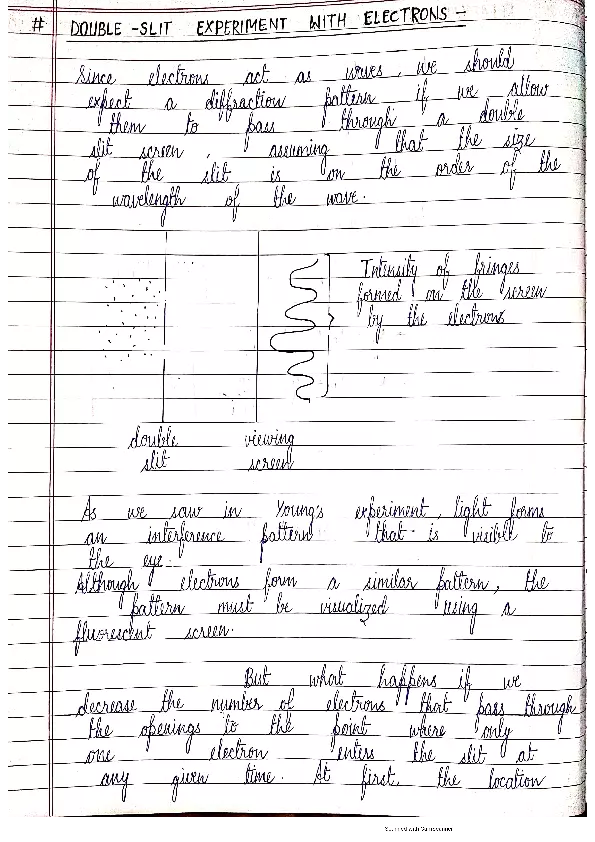 # DOUBLE-SLIT EXPERIMENT WITH ELECTRONS -
Since electrons act as waves, we should
expect a diffraction pattern if we allow
them to pass through a double
slit screen, assuming that the size
of the slit is on the order of the
wavelength of the wave.
Intensity of fringes
formed on the screen
by the electrons
double
slit
viewing
screen
As we saw in Young's experiment, light forms
an interference pattern that is visible to
the eye.
Although electrons form a similar pattern, the
pattern must be visualized using a
fluorescent screen.
But what happens if we
decrease the number of electrons that pass through
the openings to the point where only
one electron enters the slit at
any given time. At first, the location
Scanned with CamScanner